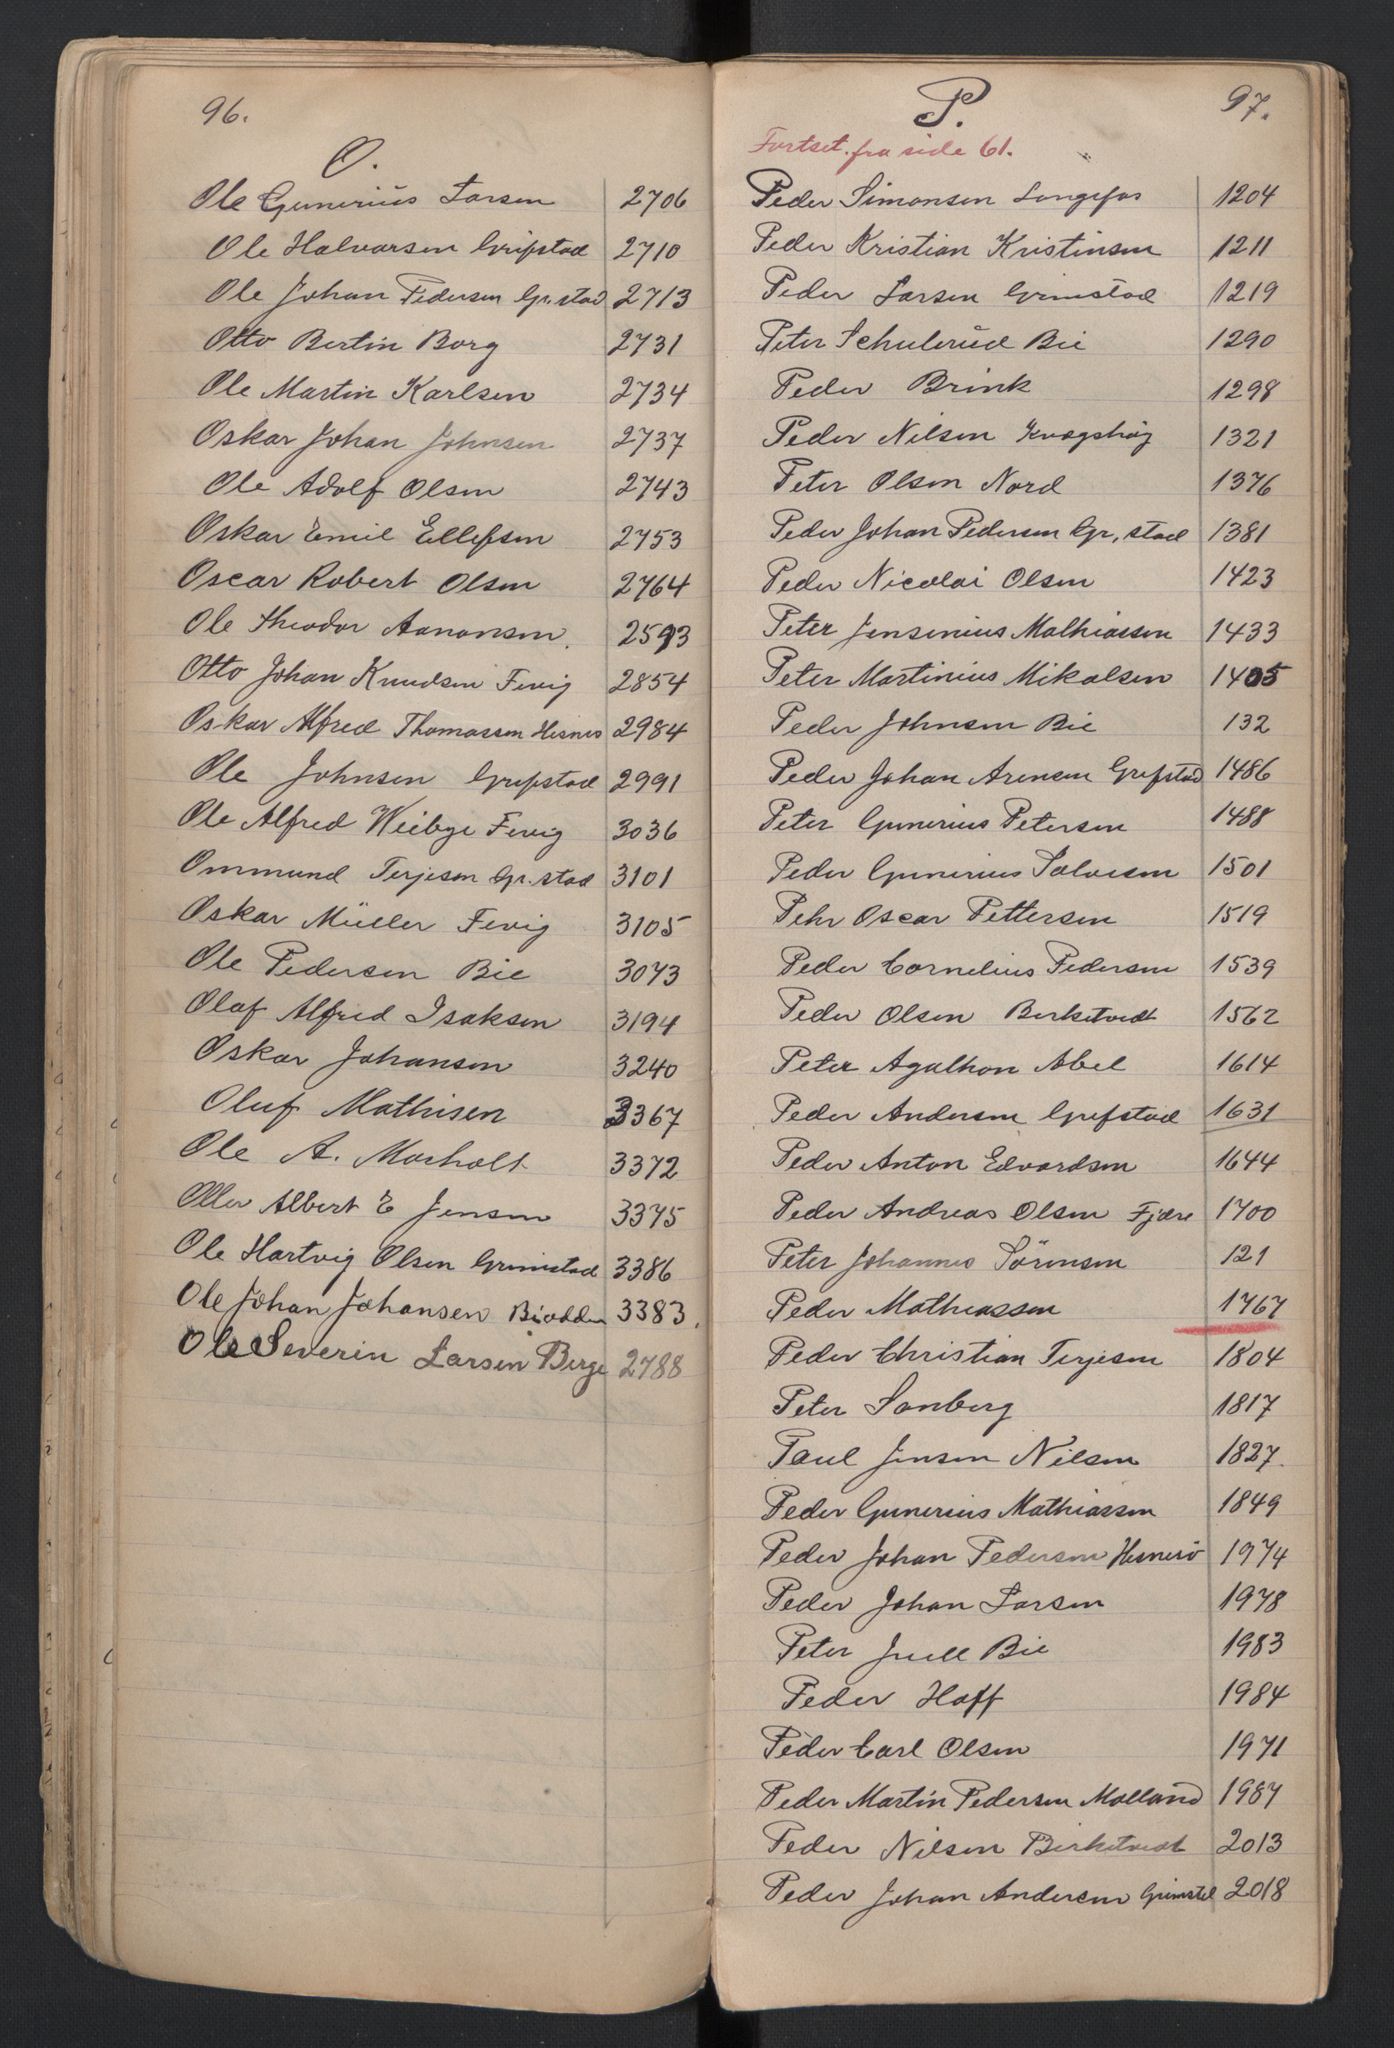 96.
O.
Ole Gunerius Larsen 2706
Ole Halvorsen Gripstad 2710
Ole Johan Pedersen Gr.stad 2713
Otto Bertin Borg 2731
Ole Martin Karlsen 2734
Oskar Johan Johnsen 2737
Ole Adolf Olsen 2743
Oskar Emil Ellefsen 2753
Oscar Robert Olsen 2764
Ole Theodor Aanonsen. 2593
Otto Johan Knudsen Fevig 2854
Oskar Alfred Thomassen Hesnes 2984
Ole Johnsen Grefstad 2991
Ole Alfred Weibye Fevig 3036
Ommund Terjesen Gr.stad 3101
Oskar Müller Fevig 3105
Ole Pedersen Bie 3073
Olaf Alfred Isaksen 3194
Oskar Johansen 3240
Oluf Mathisen 3367
Ole A. Morholt 3372
Oller Albert E Jensen 3375
Ole Hartvig Olsen Grimstad 3386
Ole Johan Johansen Biodden 3383.
Ole Severin Larsen Berge 2788
97.
P.
Fortset. fra side 61.
Peder Simonsen Longefos 1204
Peder Kristian Kristinsen 1211
Peder Larsen Grimstad 1219
Peter Schulerud Bie 1290
Peder Brink 1298
Peder Nilsen Kvagshøg 1321
Peter Olsen Nord 1376
Peder Johan Pedersen Gr,stad 1381
Peder Nicolai Olsen 1423
Peter Jensenius Mathiassen 1433
Peter Martinius Mikalsen 1405
Peder Johnsen Bie 132
Peder Johan Arensen Grefstad 1486
Peter Gunerius Petersen 1488
Peder Gunerius Salvesen 1501
Pehr Oscar Pettersen 1519
Peder Cornelius Pedersen 1539
Peder Olsen Berketvedt 1562
Peter Agathon Abel 1614
Peder Andersen Grefstad 1631
Peder Anton Edvardsen 1644
Peder Andreas Olsen Fjære 1700
Peter Johannes Sörensen 121
Peder Mathiassen 1767
Peder Christian Terjesen 1804
Peter Sonberg 1817
Paul Jensen Nilsen 1827.
Peder Gunerius Mathiassen 1849
Peder Johan Pedersen Hesnesö 1974
Peder Johan Larsen 1978
Peter Juell Bie 1983
Peder Hoff 1984
Peder Carl Olsen 1971
Peder Martin Pedersen Molland 1987
Peder Nilsen Birketvedt 2013
Peder Johan Andersen Grimstd 2018